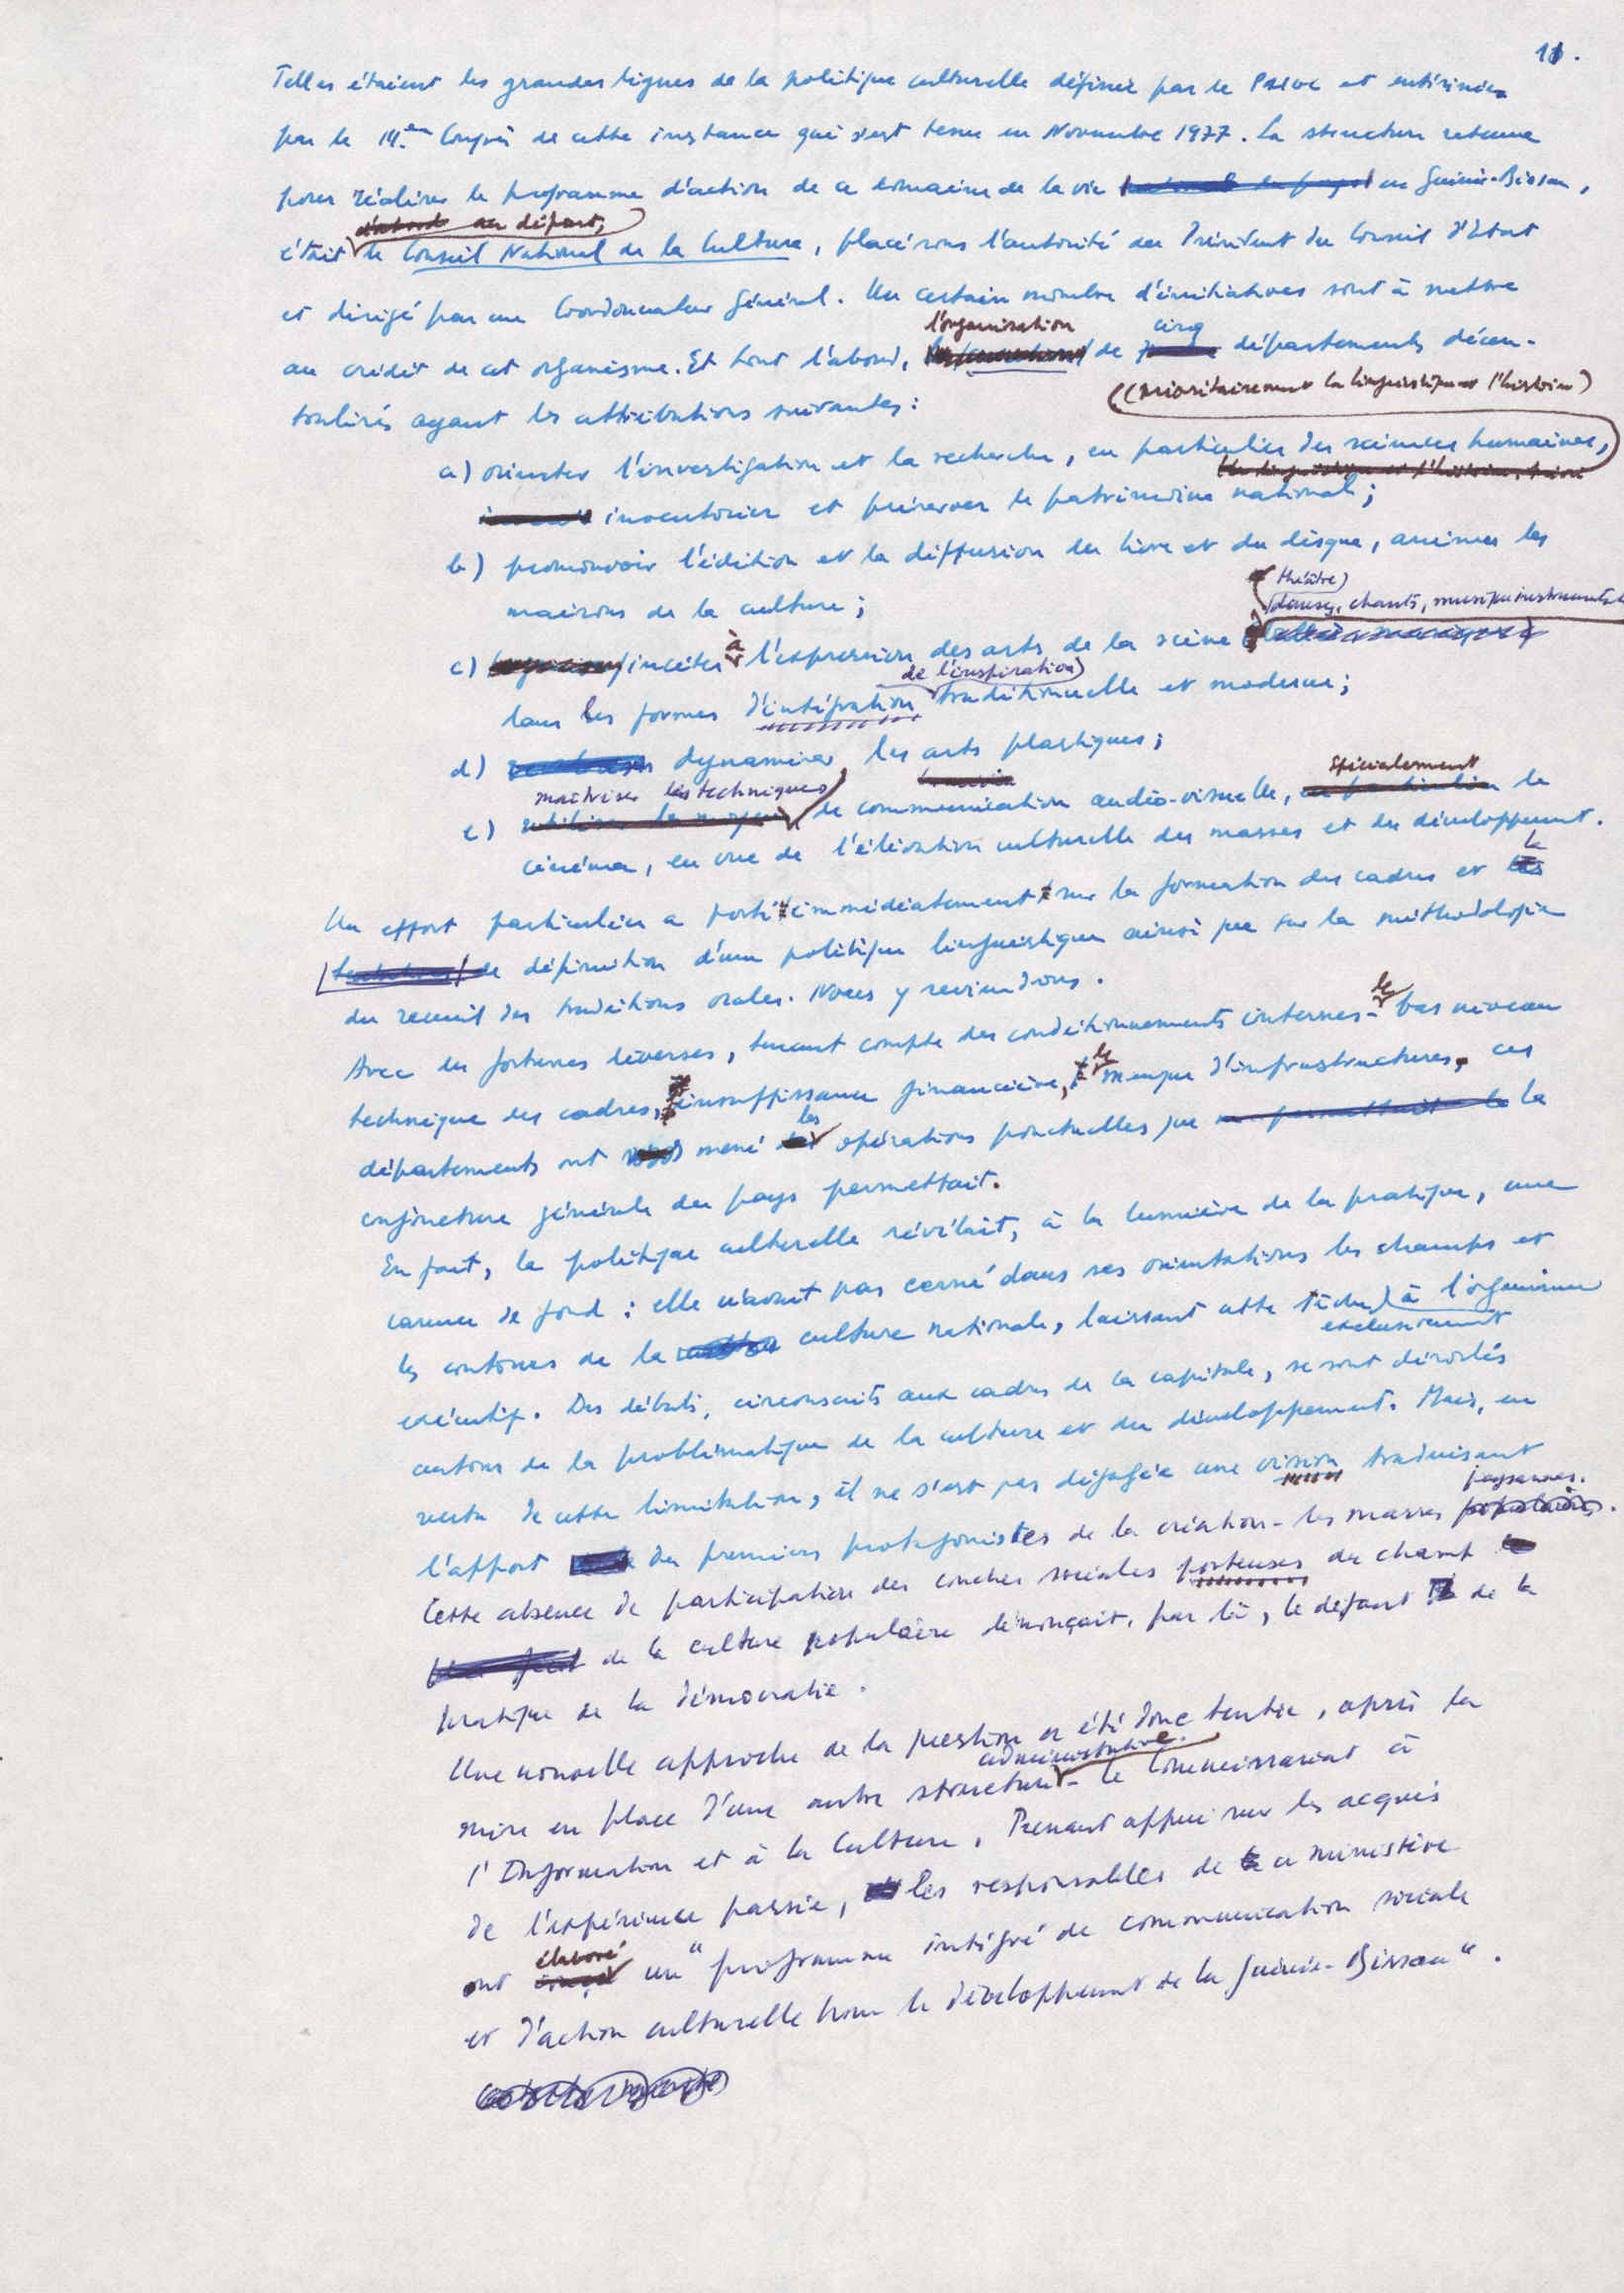 11.
Telles étaient les grandes lignes de la politique culturelle définie par le PAIGC et entérinées
par le III.ème Congrès de cette instance qui s'est tenu en Novembre 1977. La structure retenue
pour réaliser le programme d'action de ce domaine de la vie en Guinée-Bissau,
d'abord au départ,
était le Conseil National de la Culture, placé sous l'autorité du Président du Conseil d'Etat
et dirigé par un Coordonnateur Général. Un certain nombre d'initiatives sont à mettre
l'organisation cinq
au crédit de cet organisme. Et tout d'abord, de départements décen-
(prioritairement la linguistique et l'histoire)
tralisés ayant les attributions suivantes :
a) orienter l'investigation et la recherche, en particulier des sciences humaines,
la linguistique et l'histoire,
inventorier et préserver le patrimoine national ;
b) promouvoir l'édition et la diffusion du livre et du disque, animer les
maisons de la culture ;
théâtre)
danses, chants, musique instrumentale
c) inciter à l'expression des arts de la scène
de l'inspiration
dans les formes d'intégration traditionnelle et moderne ;
d) dynamiser les arts plastiques ;
maîtriser les techniques spécialement
e) utiliser les moyens de communication audio-visuelle, en particulier le
cinéma, en vue de l'élévation culturelle des masses et du développement.
Un effort particulier a porté immédiatement sur la formation des cadres et la
définition d'une politique linguistique ainsi que sur la méthodologie
du recueil des traditions orales. Nous y reviendrons.
Avec des fortunes diverses, tenant compte des conditionnements internes - le bas niveau
technique des cadres, insuffisance financière, le manque d'infrastructures, ces
départements ont mené les opérations ponctuelles que la
conjoncture générale du pays permettait.
En fait, la politique culturelle révélait, à la lumière de la pratique, une
carence de fond : elle n'avait pas cerné dans ses orientations les champs et
les contours de la culture nationale, laissant cette tâche à l'organisme
exclusivement
exécutif. Des débats, circonscrits aux cadres de la capitale, se sont déroulés
autour de la problématique de la culture et du développement. Mais, en
vertu de cette limitation, il ne s'est pas dégagée une vision traduisant
paysannes.
l'apport des premiers protagonistes de la création - les masses populaires.
Cette absence de participation des couches sociales porteuses du champ
de la culture populaire dénonçait, par là, le défaut de la
pratique de la démocratie.
Une nouvelle approche de la question a été donc tentée, après la
administrative.
mise en place d'une autre structure - le Commissariat à
l'Information et à la Culture. Prenant appui sur les acquis
de l'expérience passée, les responsables de ce ministère
élaboré
ont conçu un "programme intégré de communication sociale
et d'action culturelle pour le développement de la Guinée-Bissau".